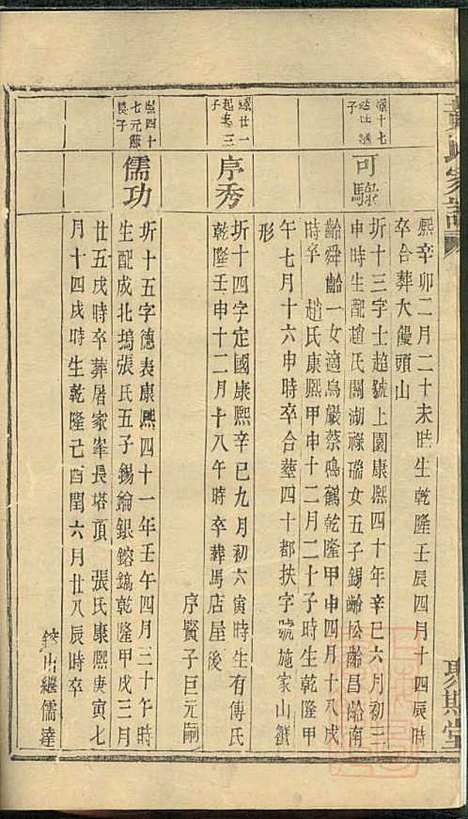 熙辛卯二月二十未時生乾隆壬辰四月十四辰時
卒合葬大饅頭山
可驂
圻十三字士超號上園康熙四十年辛巳六月初三
申時生配趙氏閣湖祿瑞女五子錫齡松齡昌齡南
齡舜齡一女適烏嚴蔡鳴鶴乾隆甲申四月十八戌
時卒 趙氏康熙甲申十二月二十子時生乾隆甲
午七月十六申時卒合葬四十都扶字號施家山蟹
形
序秀
圻十四字定國康熙辛巳九月初六寅時生有傅氏
乾隆壬申十二月十八午時卒葬馬店屋後
序賢子巨元嗣
塩四十
七元
長子
儒功
圻十五字德表康熙四十一年壬午四月三十午時
生配成北塢張氏五子錫鑰銀鎔鎬乾隆甲戌三月
廿五戌時卒葬屠家峯長塔頂 張氏康熙庚寅七
月十四戌時生乾隆己酉閏六月廿八辰時卒
出繼儒達
聚斯堂